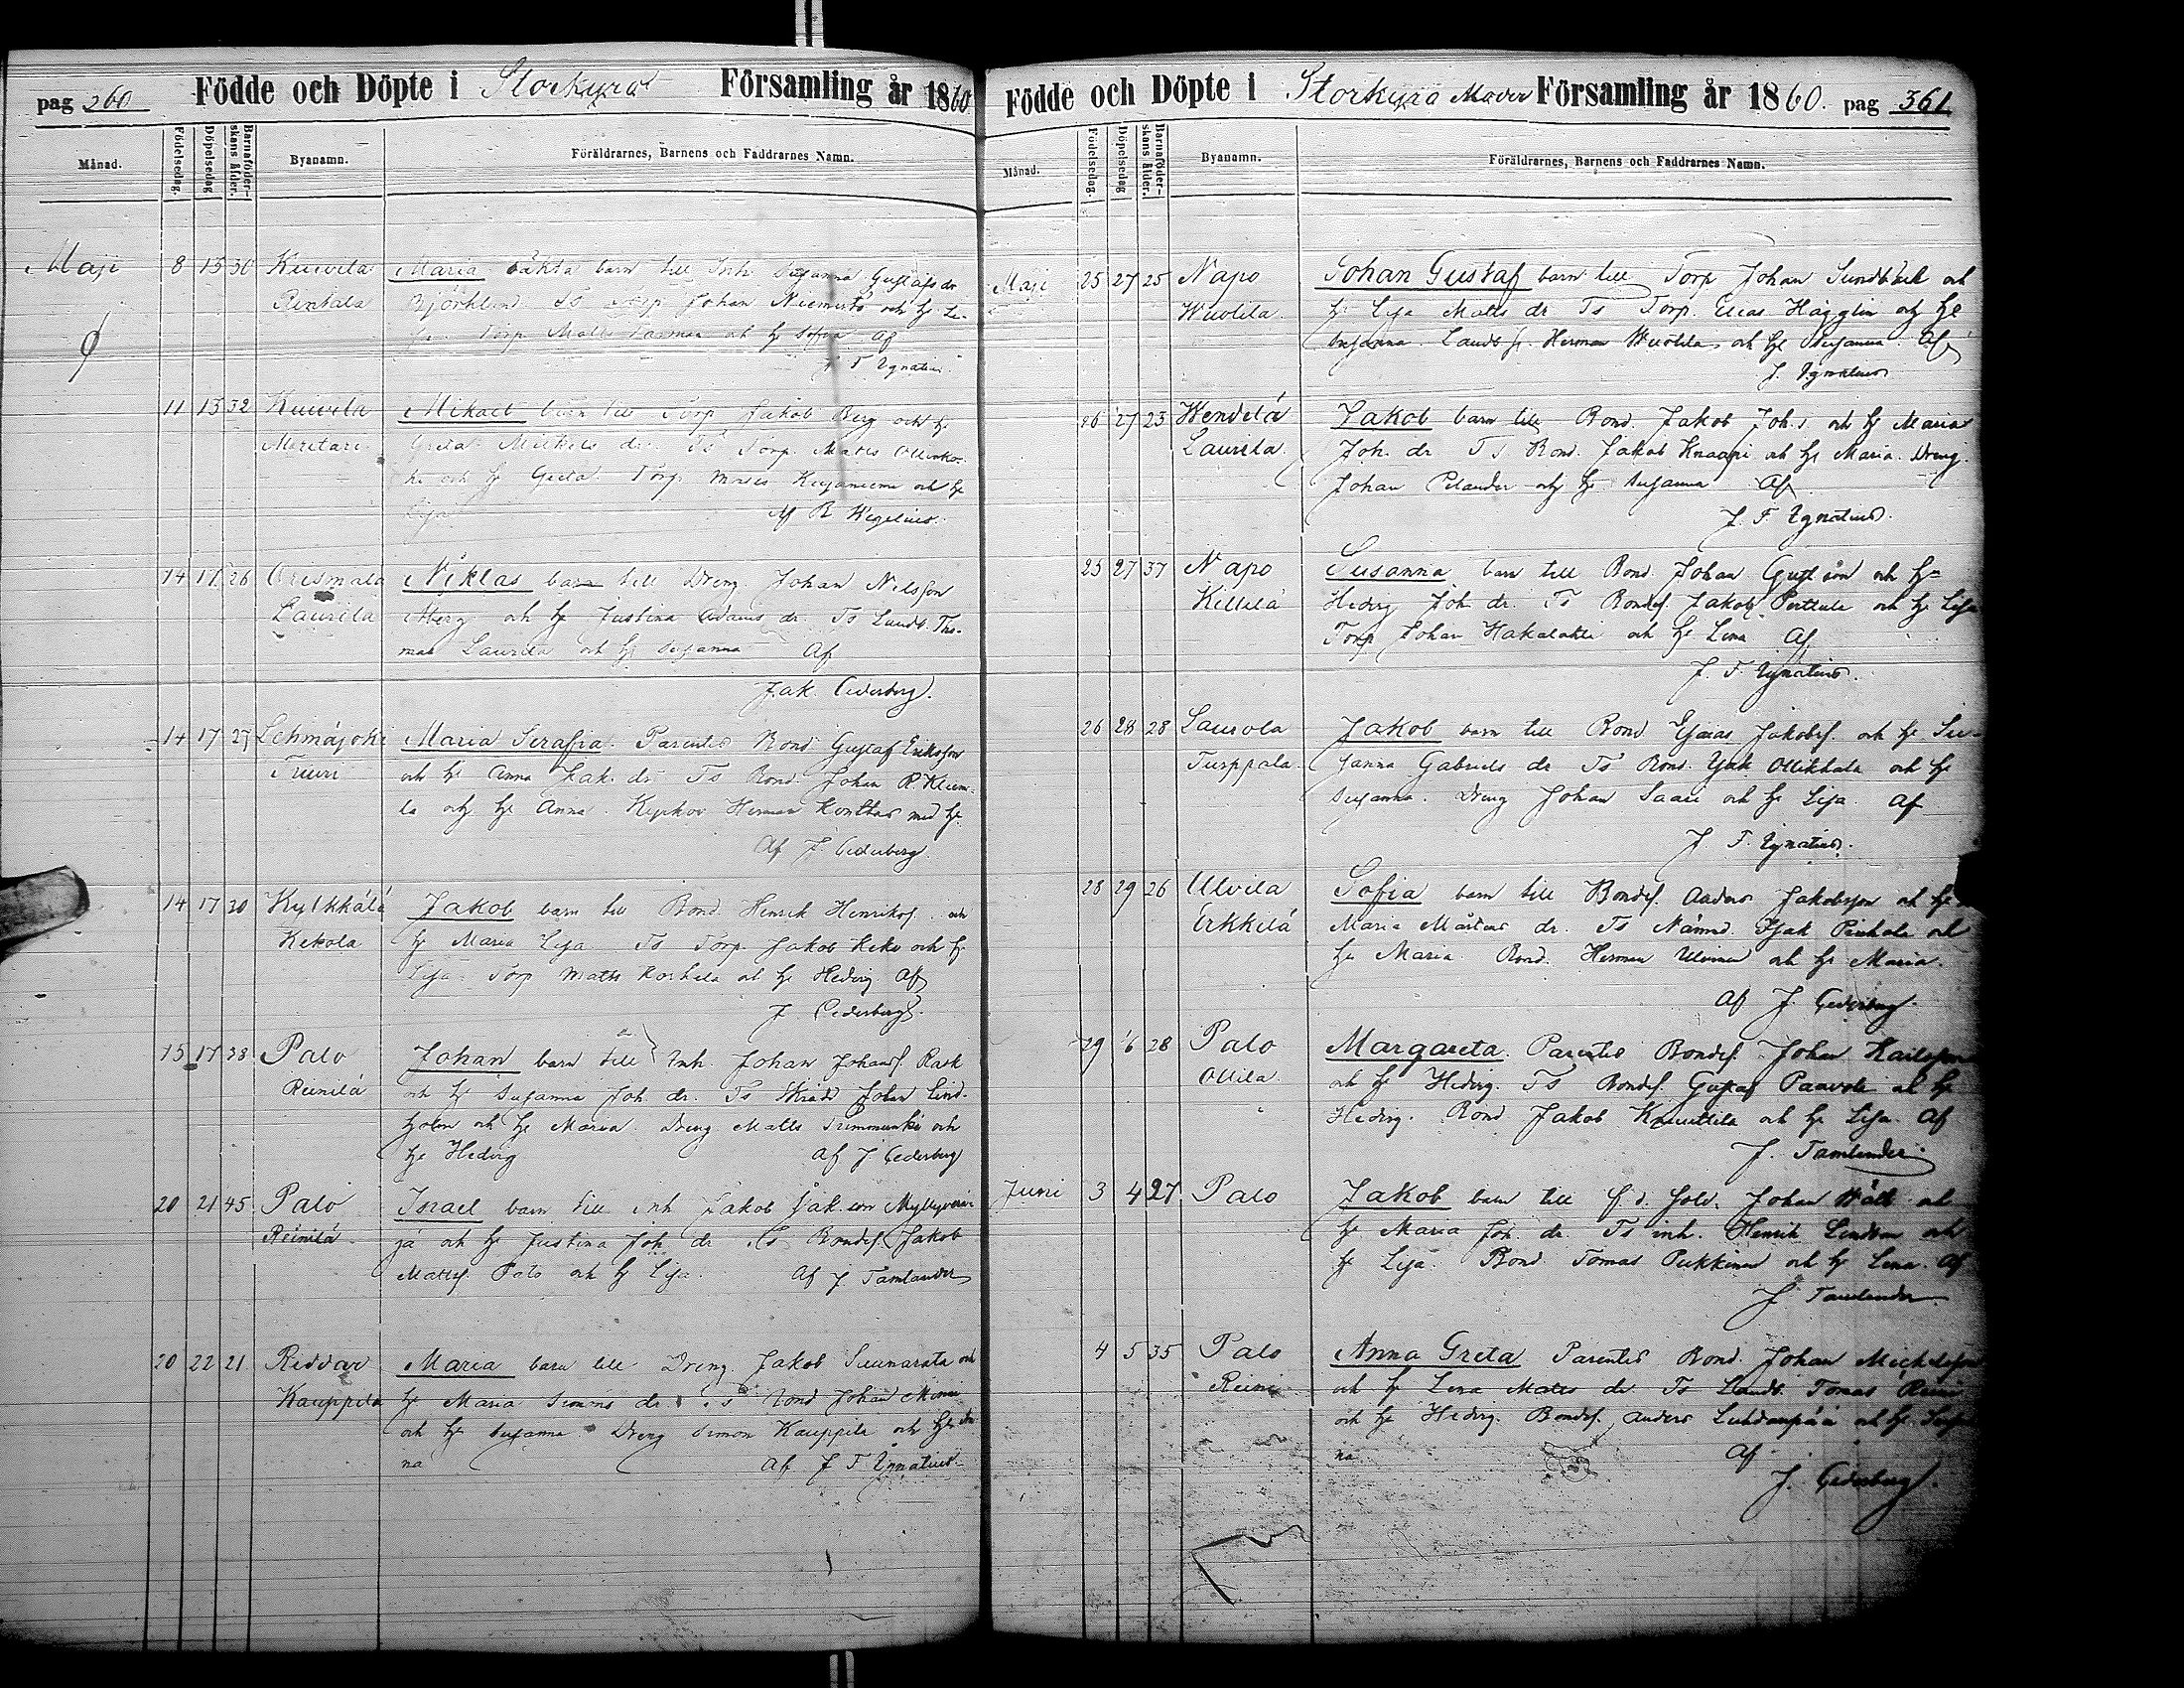 pag 260 Födde och Döpte i Storkyro Församling år 1860
Månad. Födelsedag. Döpelsedag Barnaföderskans ålder. Byanamn. Föräldrarnes, Barnens och Faddrarnes Namn.
Maji 8 13 30 Kuivila Maria oäkta barn till Inh. Susanna Gustafs dr
Rintala Björklund. Ts Torp Johan Niemistö och h Li-
Torp. Matts och h Sofia Af
J F Ignatius
11 13 32 Kuivila Mikael barn till Torp Jakob Berg och h
Greta Mickels dr. Ts Torp. Matts
och h Greta. Torp. och h
Lisa Af B Wegelius.
14 17 26 Orismala Niklas barn till Dreng. Johan Nilsson
Laurila Åberg och h Justina Adams dr. Ts Landb. Tho-
mas Laurila och h Susanna Af
Jak. Cederberg.
14 17 27 Lehmäjoki Maria Serafia. Parentes Bond Gustaf Eriksson
Truuri och h Anna Jak. dr Ts Bond. Johan
la och h Anna. Kyrkov Herman Konttas med h
Af J. Cederberg.
14 17 30 Kylkkälä Jakob barn till Bond. Henrik Henriks. och
Kekola h Maria Lisa Ts Torp. Jakob Keko och h
Lisa. Torp Matts Korkela och h Hedvig Af
J Cederberg.
15 17 38 Palo Johan barn till Inh. Johan Johans. Rask
Reinilä och h Susanna Joh. dr. Ts Skrädd Johan Lind-
holm och h Maria. Dreng Matts och
h Hedvig Af J Cederberg
20 21 45 Palo Israel barn till inh Jakob Jak. son
Reinilä jä och h Justina Joh. dr Ts Bondes. Jakob
Matts. Palo och h Lisa. Af J. Tamlander
20 22 21 Reddar Maria barn till Dreng. Jakob och
Kauppila h Maria Simons dr Ts Bond Johan
och h Susanna Dreng Simon Kauppila och h An-
na Af J F Ignatius
Födde och Döpte i Storkyro Moder Församling år 1860. pag 361
Månad. Födelsedag. Döpelsedag Barnaföderskans ålder. Byanamn. Föräldrarnes, Barnens och Faddrarnes Namn.
Maji 25 27 25 Napo Johan Gustaf barn till Torp Johan Sundbäck och
Wuolila. h Lisa Matts dr Ts Torp. Elias Hägglin och h
Susanna. Landb. Herman Wuolila och h Susanna. Af
J. Ignatius
26 27 23 Wendelä Jakob barn till Bond. Jakob Joh. s och h Maria
Laurila. Joh. dr Ts Bond. Jakob Knaapi och h Maria. Dreng.
Johan Pelander och h Susanna Af
J. F Ignatius.
25 27 37 Napo Susanna barn till Bond. Johan Gust son och h
Killilä Hedvig Joh. dr. Ts Bondes. Jakob Perttula och h Lisa
Torp Johan Hakalahti och h Lena Af
J. F. Ignatius.
26 28 28 Lausola Jakob barn till Bond Esaias Jakobs. och h Su-
Turppala. sanna Gabriels dr Ts Bond. Isak Ollikkala och h
Susanna. Dreng Johan Saari och h Lisa. Af
J F. Ignatius.
28 29 26 Ulvila Sofia barn till Bondes. Anders Jakobsson och h
Erkkilä Maria Mårtens dr. Ts Nämnd. Isak och
h Maria. Bond. Herman och h Maria.
Af J. Cederberg.
29 6 28 Palo Margareta. Parentes Bondes. Johan
Ollila. och h Hedvig. Ts Bondes. Gustaf Paavola och h
Hedvig. Bond Jakob och h Lisa. Af
J. Tamlander.
Juni 3 4 27 Palo Jakob barn till f. d. sold. Johan och
h Maria Joh. dr Ts inh. Henrik och
h Lisa. Bond. Tomas Pukkinen och h Lena. Af
J Tamlander
4 5 35 Palo Anna Greta Parentes Bond. Johan Michelsson
Reini och h Lena Matts dr Ts Landb. Tomas Reini
och h Hedvig. Bondes. Anders Luhdanpää och h Susan-
na Af
J. Cederberg.